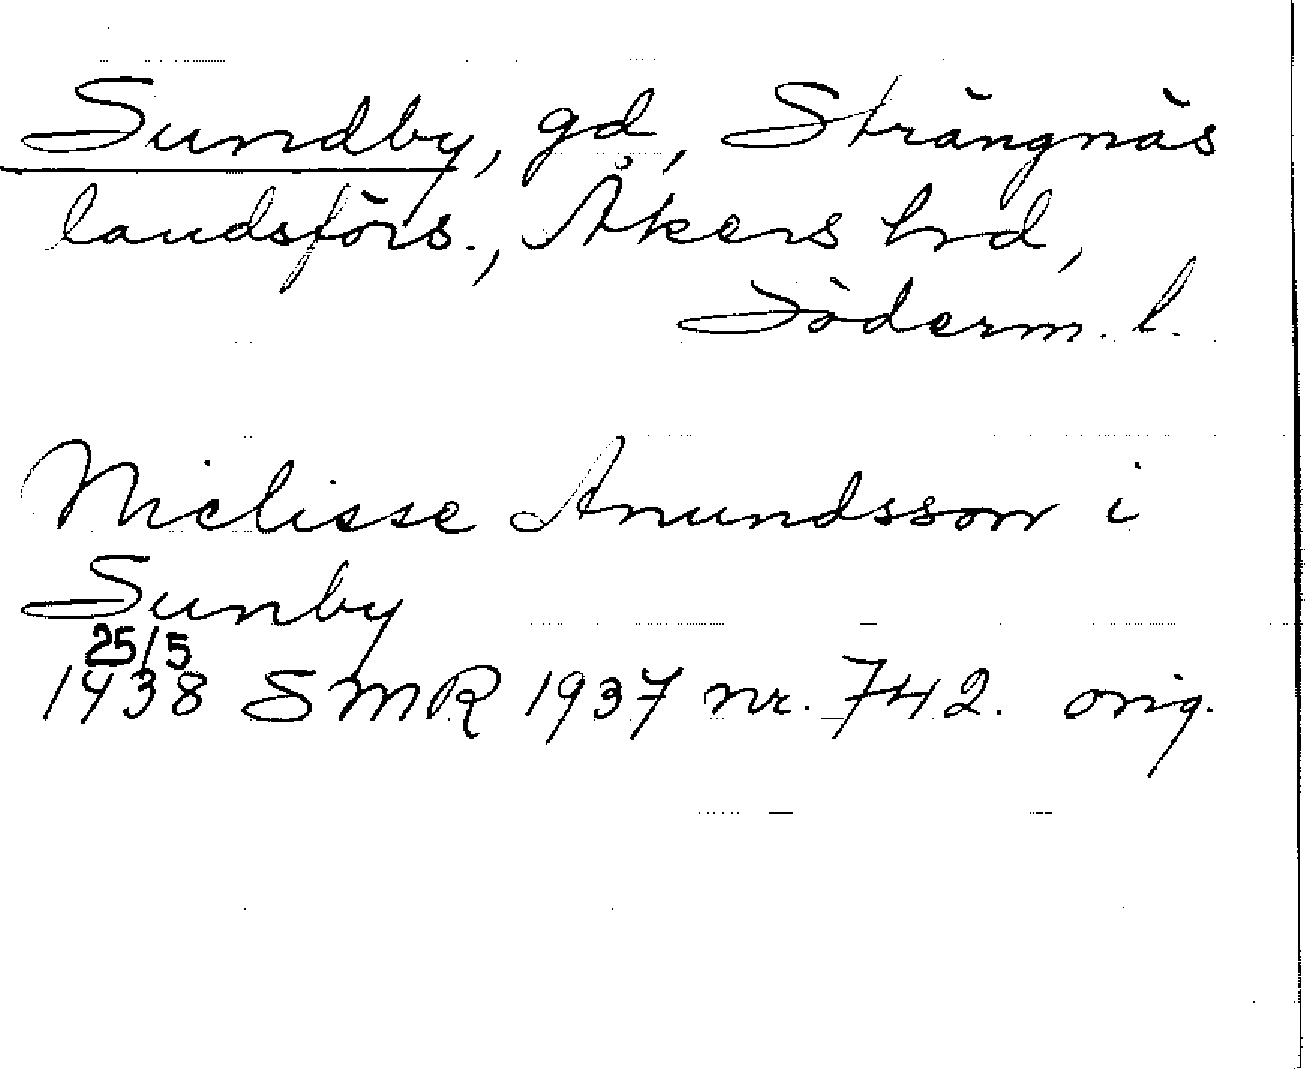 Sundby, gd, Strängnäs
landsförs., Åkers hrd,
Söderm. l.
Niclisse Anundsson i
Sunby
25/5
1438 SMR 1937 nr. 742. orig.